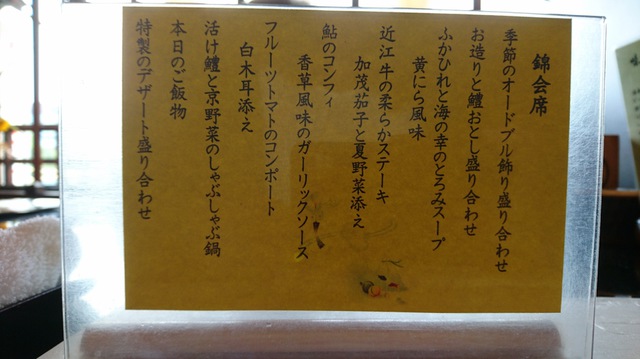 錦会席
季節のオードブル飾り盛り合わせ
お造りと鱧おとし盛り合わせ
ふかひれと海の幸のとろみスープ
黄にら風味
近江牛の柔らかステーキ
加茂茄子と夏野菜添え
鮎のコンフィ
香草風味のガーリックソース
フルーツトマトのコンポート
白木耳添え
活け鱧と京野菜のしゃぶしゃぶ鍋
本日のご飯物
特製のデザート盛り合わせ